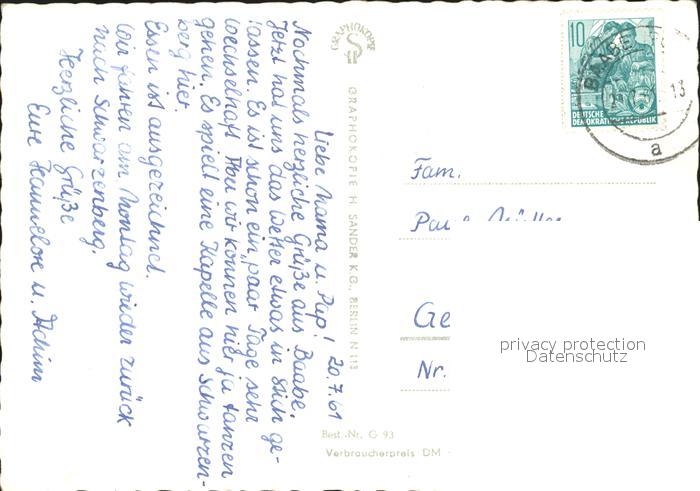 Liebe Mama u. Pap! 20.7.61
Nochmals herzliche Grüße aus Baabe.
Jetzt hat uns das Wetter etwas in Stich ge-
lassen. Es ist schon ein paar Tage sehr
wechselhaft. Aber wir können hier ja tanzen
gehen. Es spielt eine Kapelle aus Schwarzen-
berg hier.
Essen ist ausgezeichnet.
Wir fahren am Montag wieder zurück
nach Schwarzenberg.
Herzliche Grüße
Eure Hannelore u. Achim
GRAPHOKOPIE
GRAPHOKOPIE H. SANDER K.G., BERLIN N 113
Best.-Nr. G 93
Verbraucherpreis DM
10
DEUTSCHE
DEMOKRATISCHE REPUBLIK
BAABE
13
a
Fam.
Ge
Nr.
privacy protection
Datenschutz